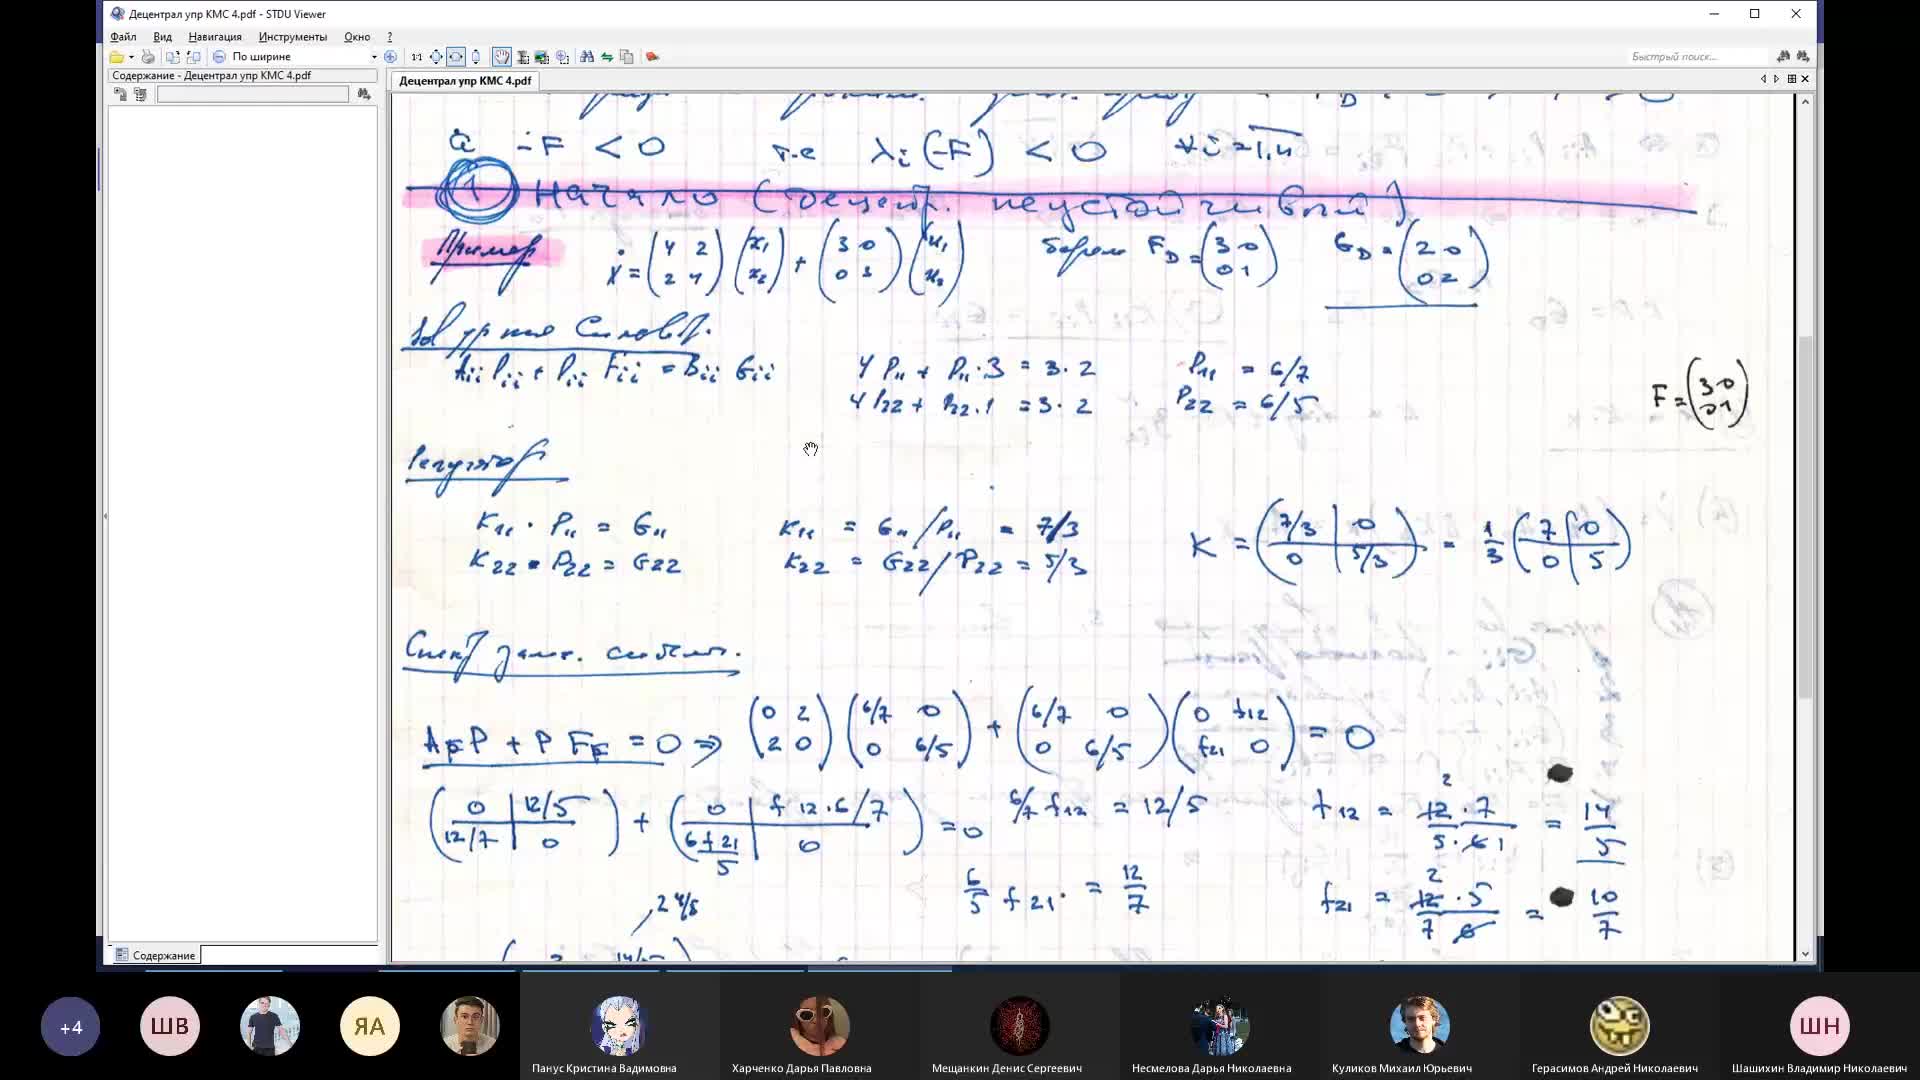 Децентрал упр КМС 4.pdf - STDU Viewer
Файл Вид Навигация Инструменты Окно ?
По ширине
1:1
Быстрый поиск...
Содержание - Децентрал упр КМС 4.pdf
Децентрал упр КМС 4.pdf
-F < 0 т.е λi (-F) < 0 ∀i=1,n
1 Начало (децентр. неустойчивый)
Пример ẋ = (4 2; 2 4) (x1; x2) + (3 0; 0 3) (u1; u2) берем F_D = (3 0; 0 1) G_D = (2 0; 0 2)
Aii Pii + Pii Fii = Bii Gii 4 P11 + P11 · 3 = 3 · 2 P11 = 6/7
4 P22 + P22 · 1 = 3 · 2 P22 = 6/5
F = (3 0; 0 1)
Регулятор
K11 · P11 = G11 K11 = G11 / P11 = 7/3
K22 · P22 = G22 K22 = G22 / P22 = 5/3
K = (7/3 0; 0 5/3) = 1/3 (7 0; 0 5)
Спектр замк. системы.
A_F P + P F_F = 0 ⇒ (0 2; 2 0) (6/7 0; 0 6/5) + (6/7 0; 0 6/5) (0 f12; f21 0) = 0
(0 12/5; 12/7 0) + (0 f12·6/7; 6f21/5 0) = 0 6/7 f12 = 12/5 f12 = 12·7 / 5·6 = 14/5
6/5 f21 = 12/7 f21 = 12·5 / 7·6 = 10/7
2 4/5
Содержание
+4
ШВ
ЯА
Панус Кристина Вадимовна
Харченко Дарья Павловна
Мещанкин Денис Сергеевич
Несмелова Дарья Николаевна
Куликов Михаил Юрьевич
Герасимов Андрей Николаевич
ШН
Шашихин Владимир Николаевич